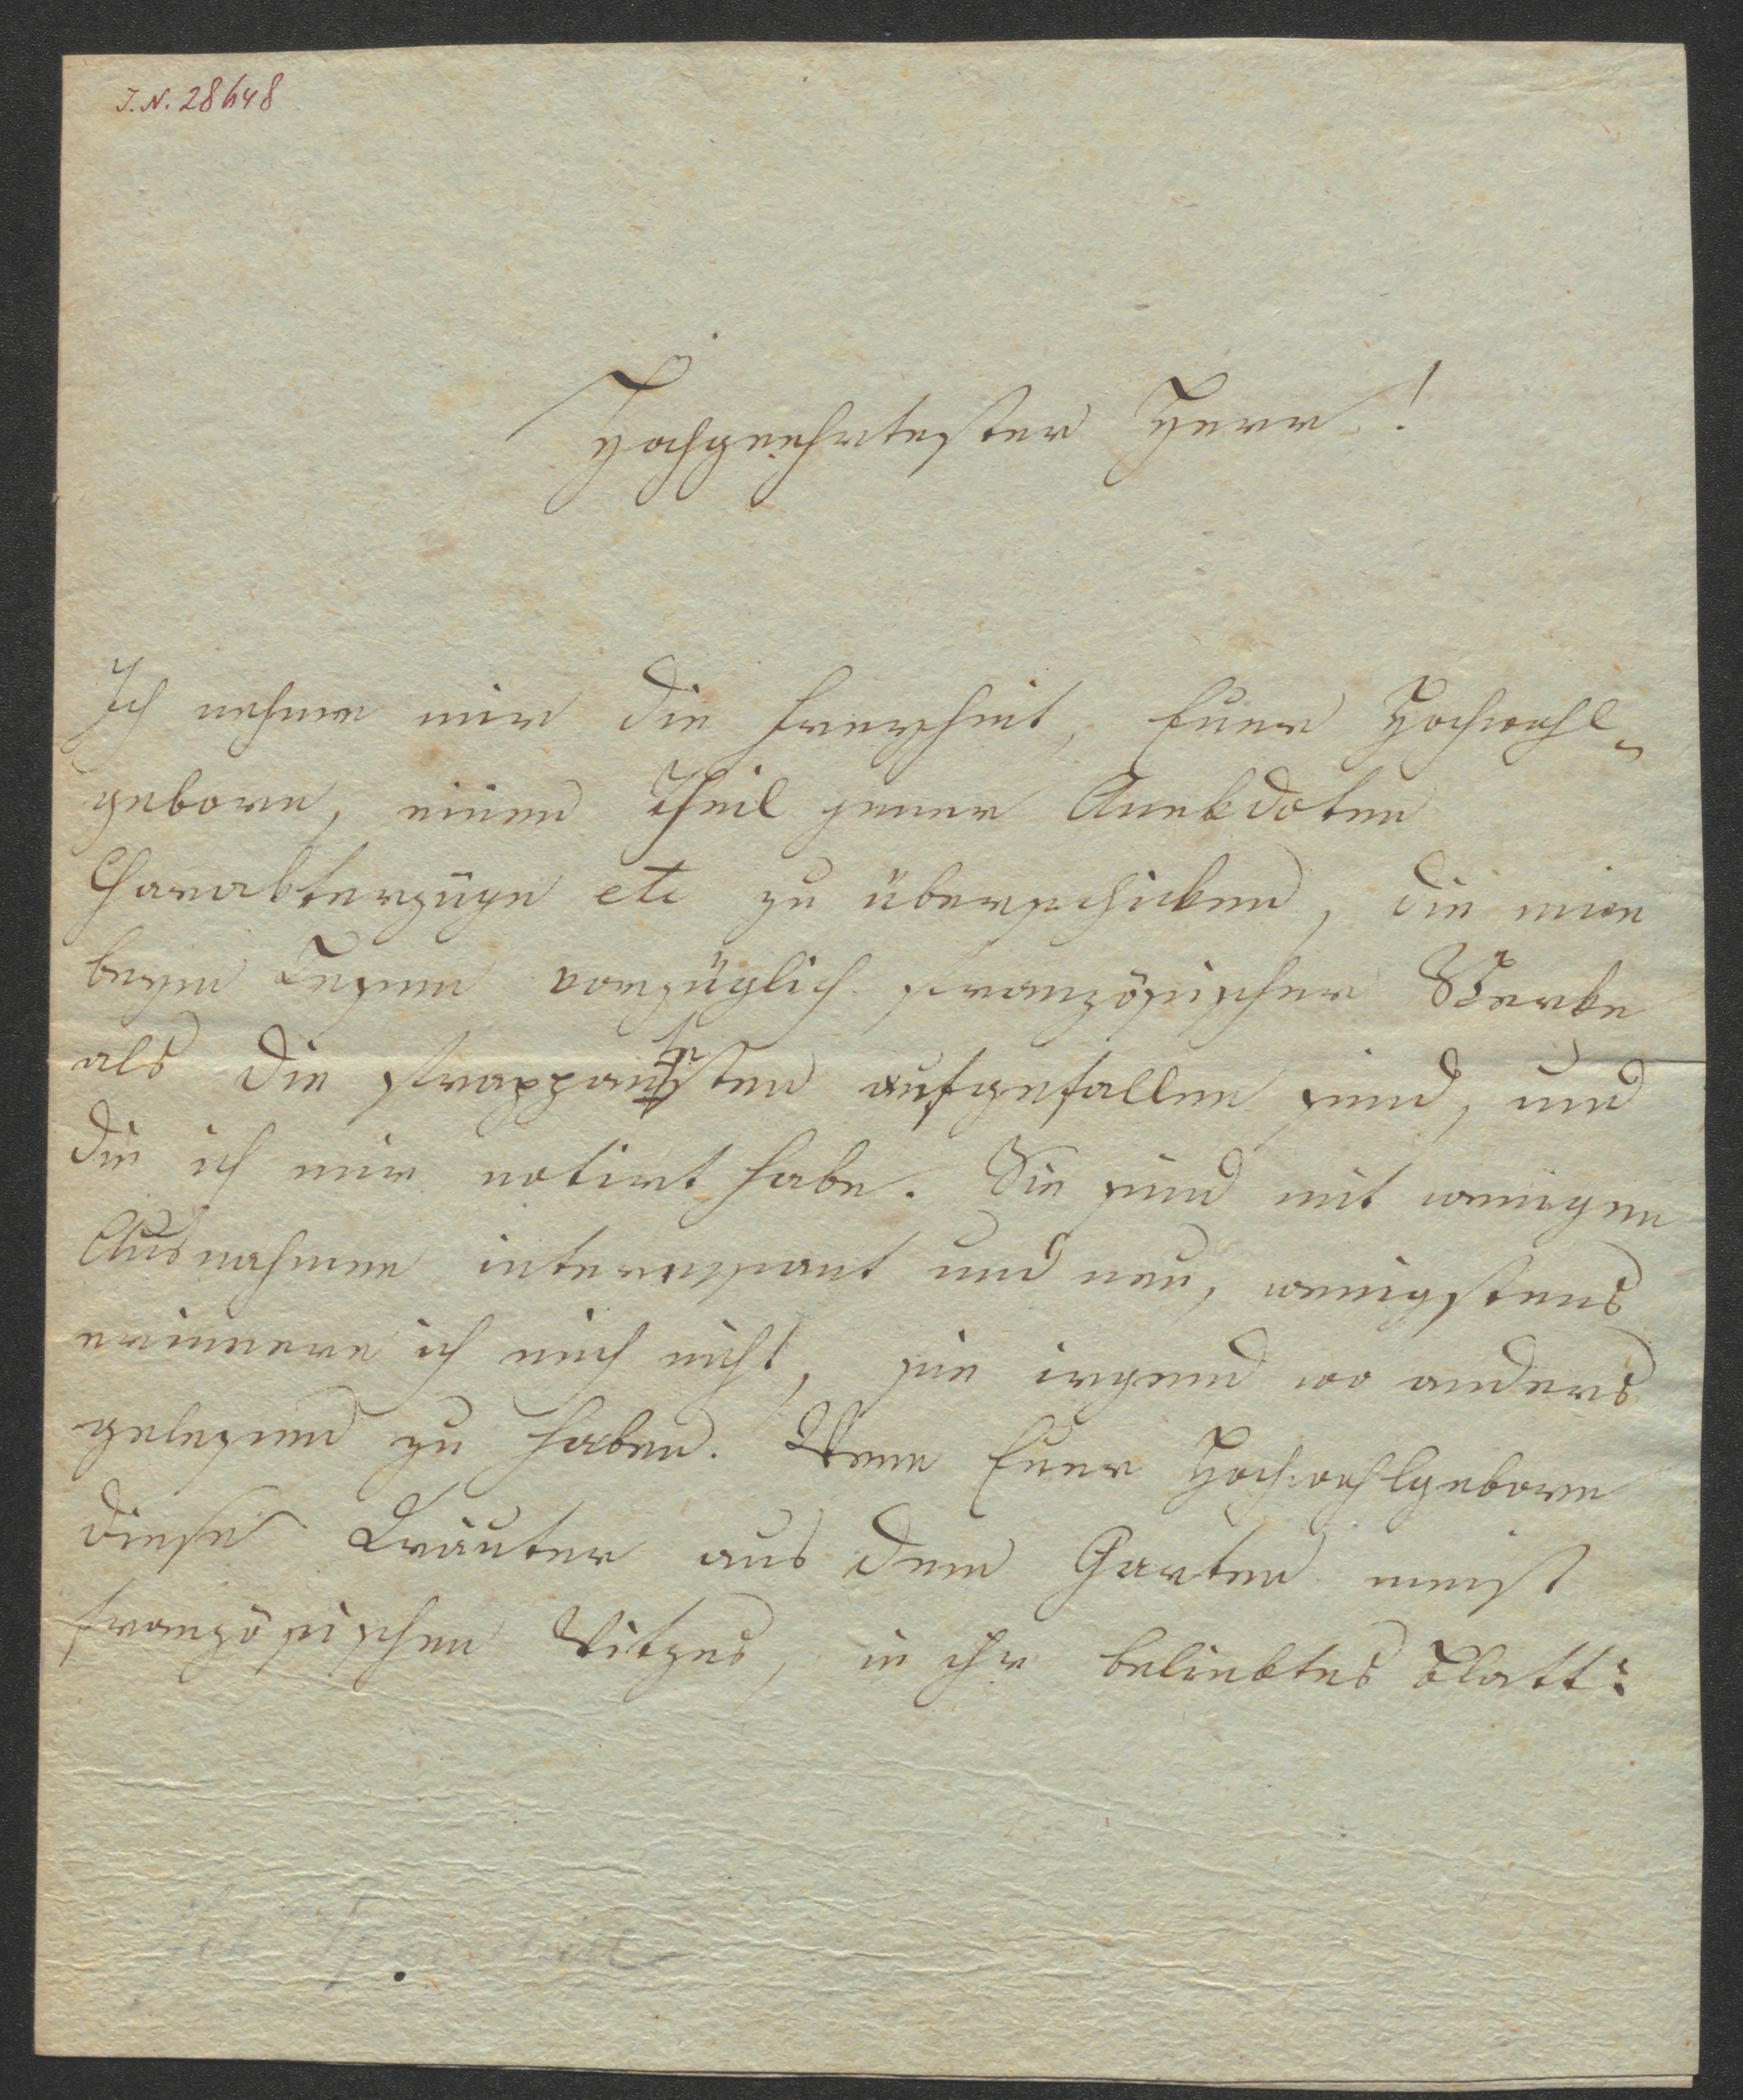 J.N. 28648
Hochgeehrtester Herr!
Ich nehme mir die Freyheit, Euer Hochwohl-
geboren, einen Theil jener Anekdoten
Charakterzüge etc zu überschicken, die mir
beym Lesen vorzüglich französischer Werke
als die frappantesten aufgefallen sind, und
die ich mir notirt habe. Sie sind mit wenigen
Ausnahmen interessant und neu, wenigstens
erinnere ich mich nicht, sie irgend wo anders
gelesen zu haben. Wenn Euer Hochwohlgeboren
diese Kräuter aus dem Garten meist
französischen Witzes, in ihr beliebtes Blatt: